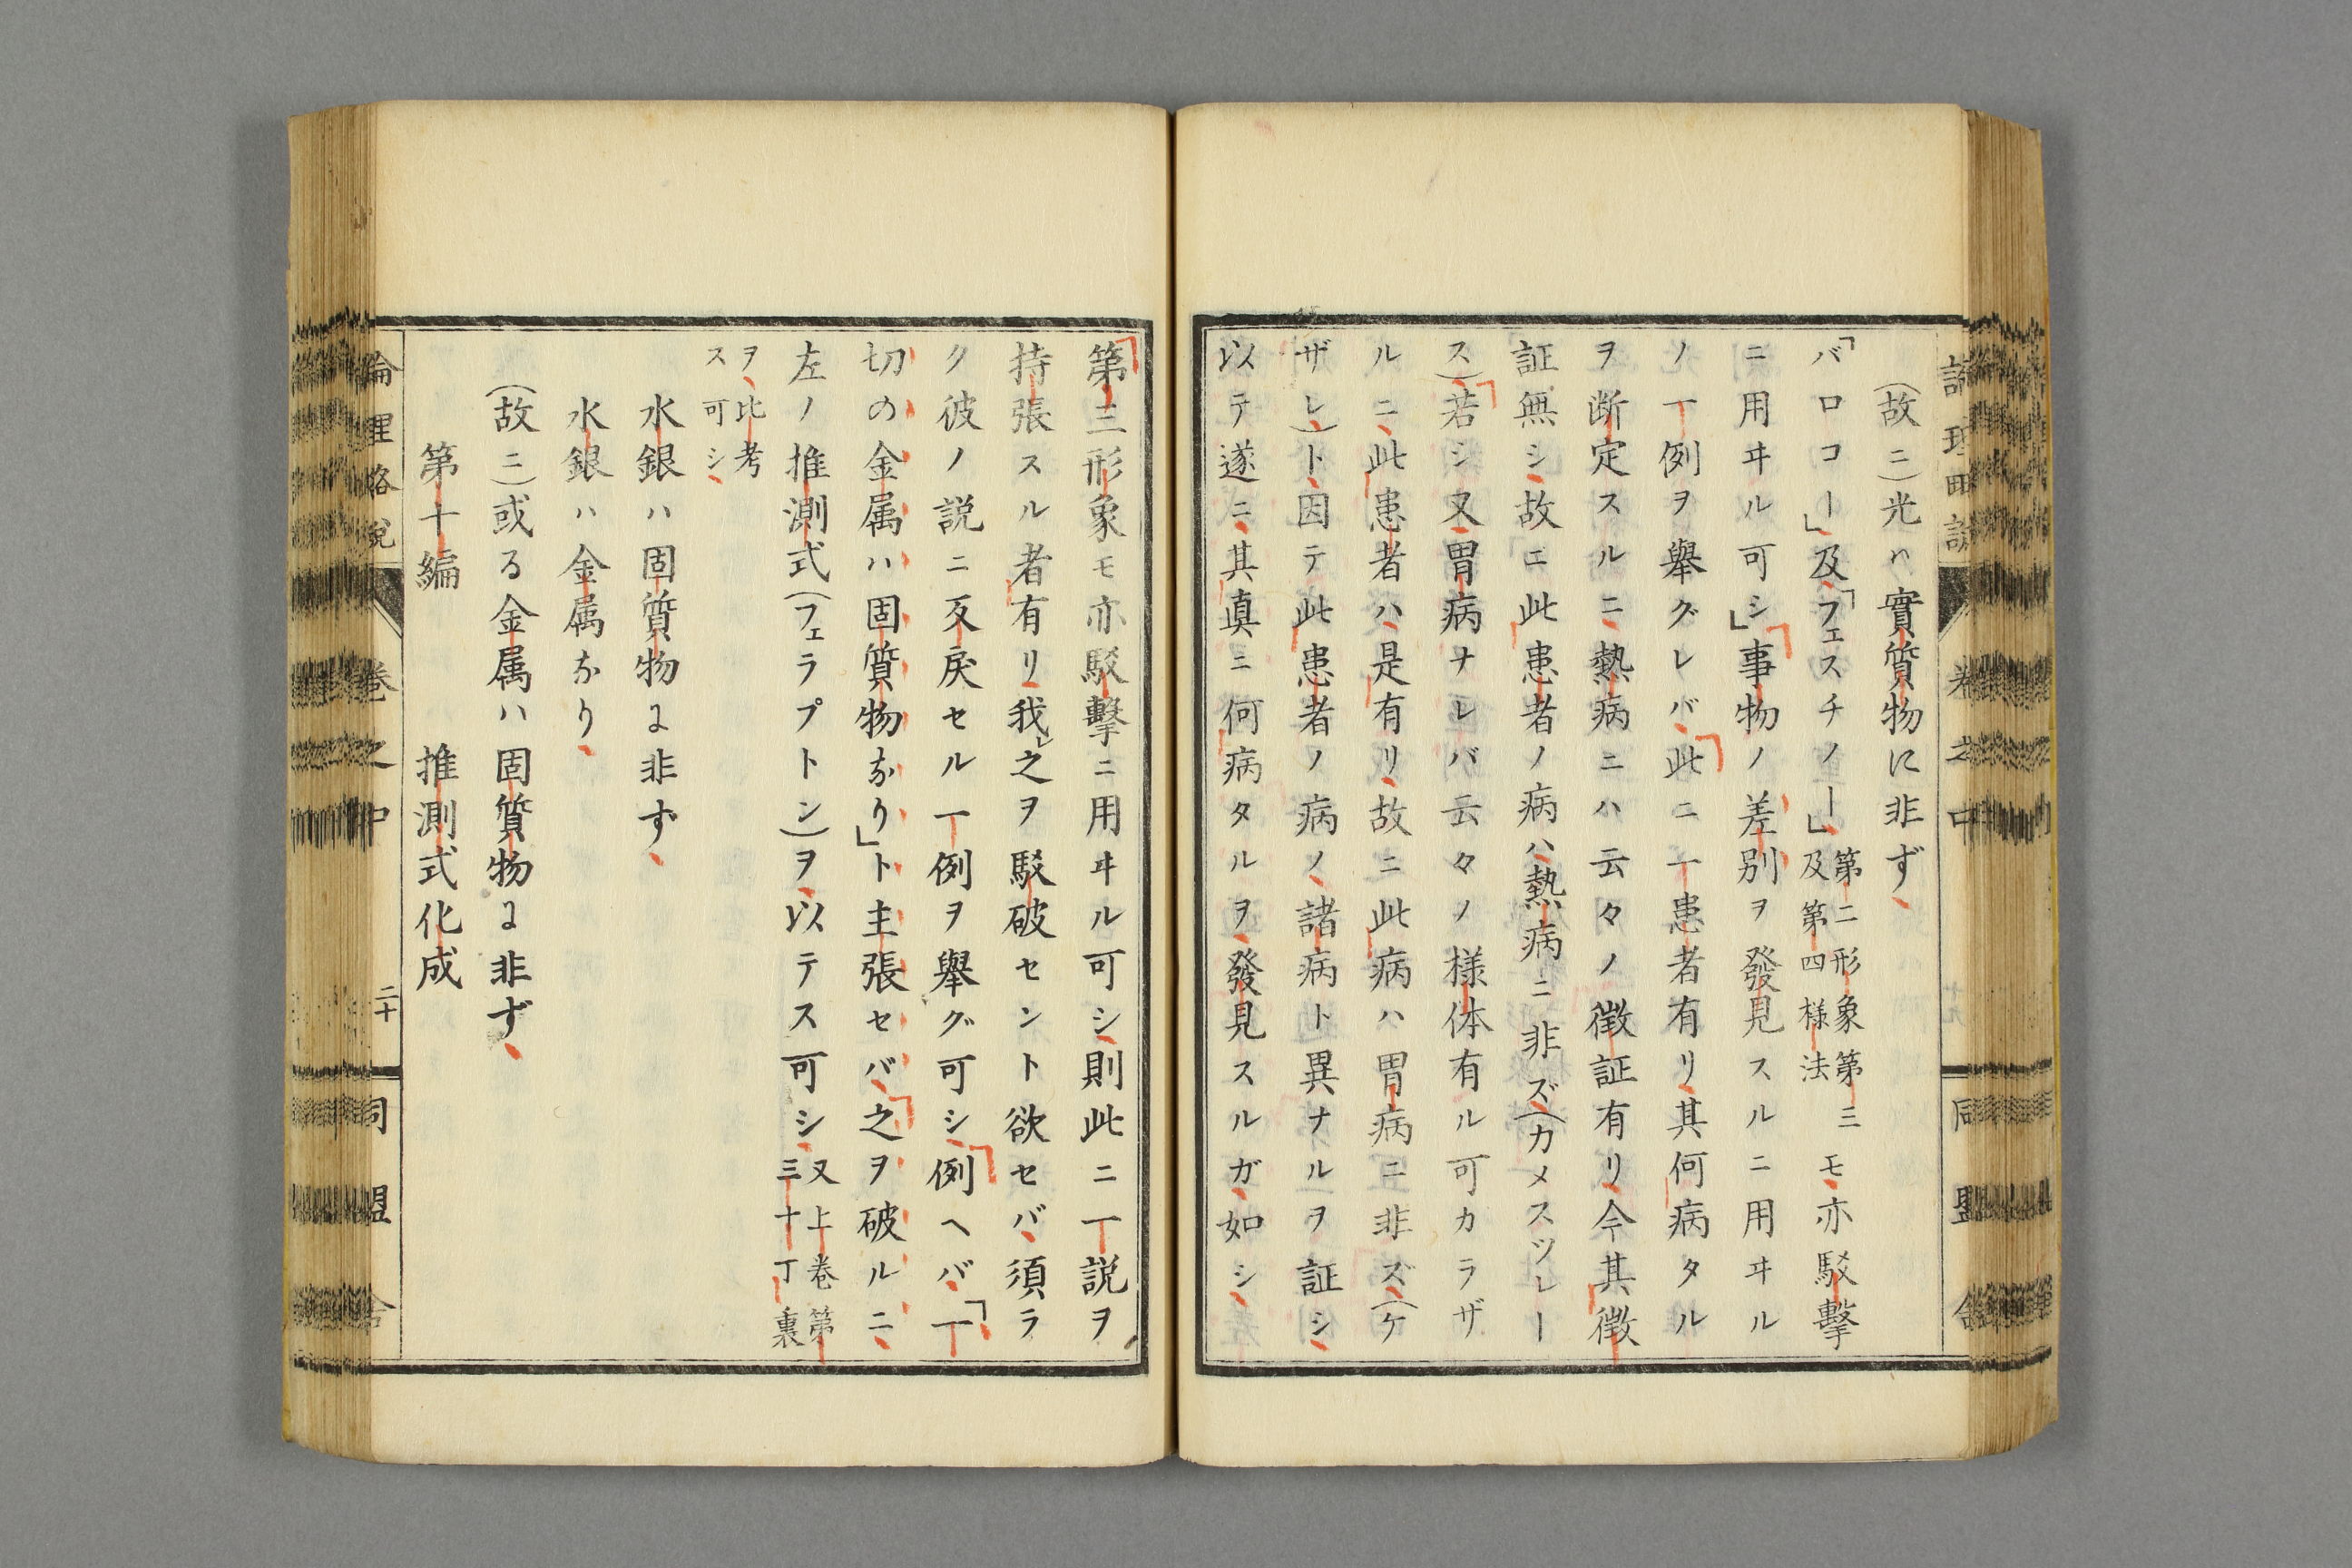 (故ニ)光ハ實質物に非ず、
「バロコー」及「フェスチノー」第二形象第三及第四様法モ亦駁擊
ニ用ヰル可シ」事物ノ差別ヲ發見スルニ用ヰル
ノ一例ヲ舉グレバ此ニ一患者有リ其何病タル
ヲ断定スルニ熱病ニハ云々ノ徴証有リ今其徴
証無シ故ニ此患者ノ病ハ熱病ニ非ズ(カメスツレー
ス)若シ又胃病ナレバ云々ノ様体有ル可カラザ
ルニ此患者ハ是有リ故ニ此病ハ胃病ニ非ズ(ケ
ザレ)ト因テ此患者ノ病ノ諸病ト異ナルヲ証シ
以テ遂ニ其真ニ何病タルヲ發見スルガ如シ
第三形象モ亦駁擊ニ用ヰル可シ則此ニ一説ヲ
持張スル者有リ我レ之ヲ駁破セント欲セバ須ラ
ク彼ノ説ニ反戻セル一例ヲ舉グ可シ例ヘバ「一
切の金属ハ固質物なり」ト主張セバ之ヲ破ルニ
左ノ推測式(フェラプトン)ヲ以テス可シ又上卷第三十丁裏
ヲ比考ス可シ
水銀ハ固質物に非ず、
水銀ハ金属なり、
(故ニ)或る金属ハ固質物に非ず、
第十編　推測式化成
論理略説　卷之中　二十　同盟舎